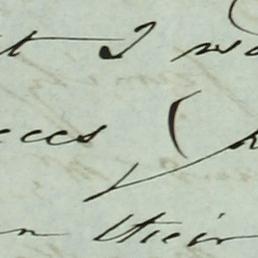 t I wo
ces (
n their